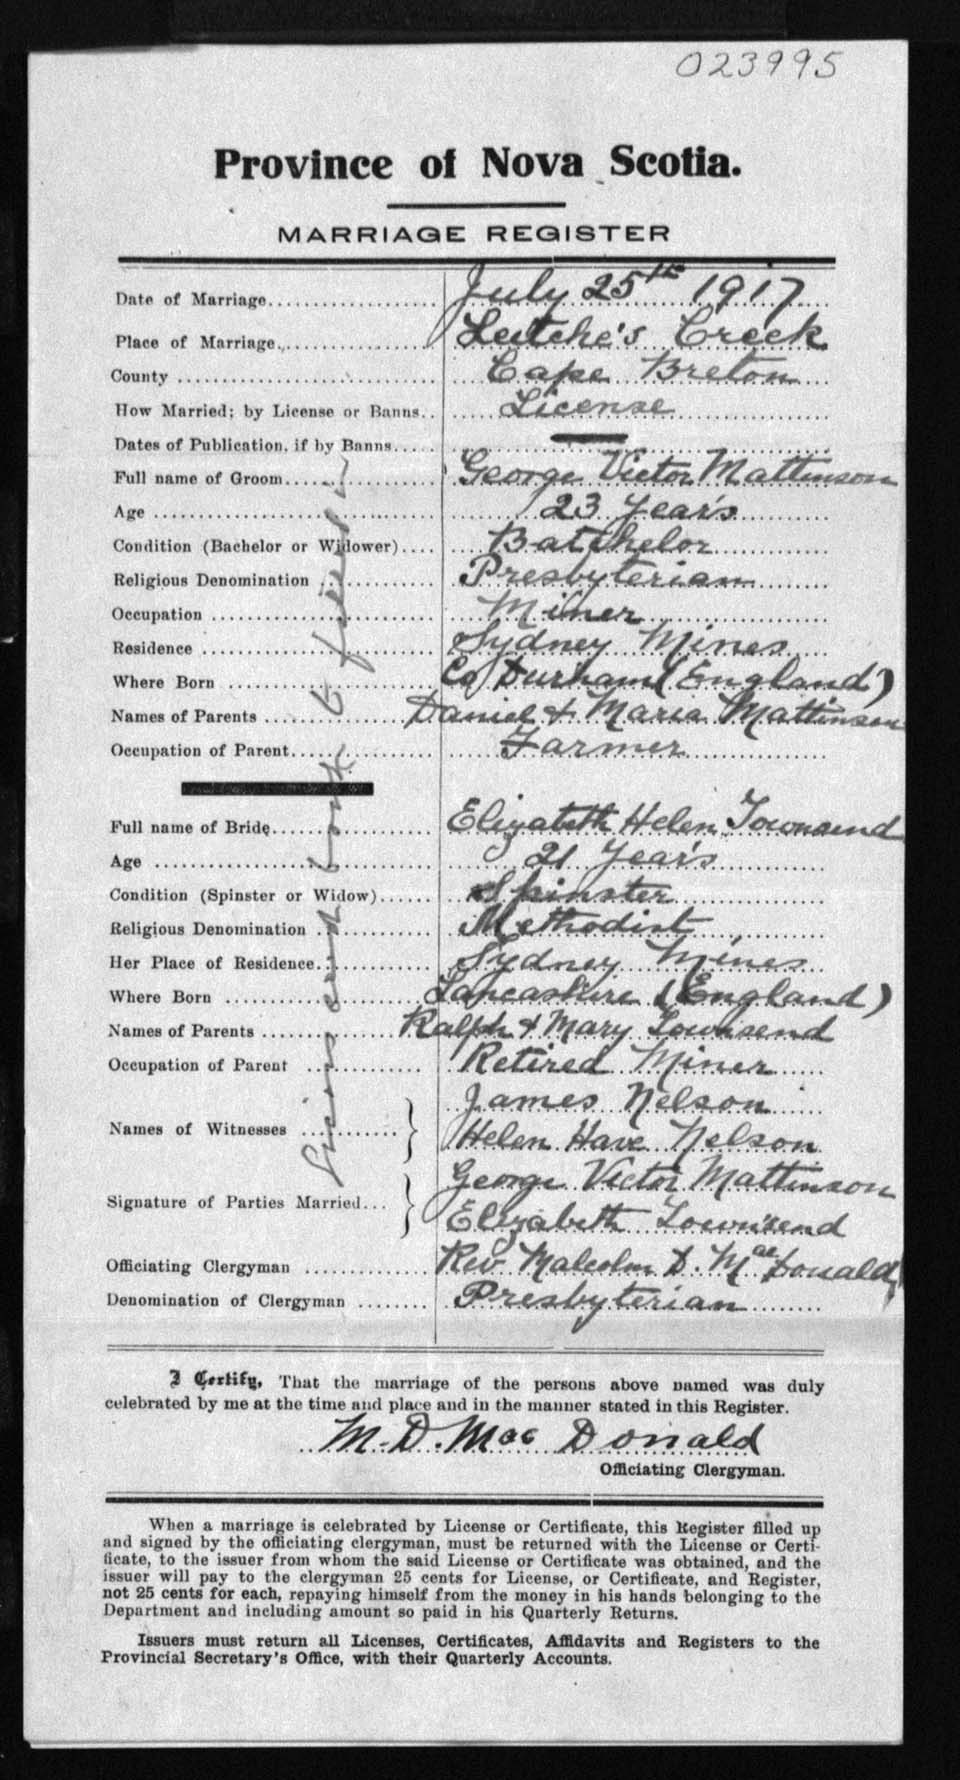 023995
Province of Nova Scotia.
MARRIAGE REGISTER
Date of Marriage.................... July 25th 1917
Place of Marriage.................. Leitche's Creek
County ............................. Cape Breton
How Married; by License or Banns.. License
Dates of Publication, if by Banns.....
Full name of Groom................. George Victor Mattinson
Age ................................. 23 Year's
Condition (Bachelor or Widower).... Batchelor
Religious Denomination ............. Presbyterian
Occupation ......................... Miner
Residence .......................... Sydney Mines
Where Born ........................ Co Durham (England)
Names of Parents ................. Daniel & Maria Mattinson
Occupation of Parent................ Farmer
Full name of Bride.................. Elizabeth Helen Townsend
Age ................................. 21 Year's
Condition (Spinster or Widow)...... Spinster
Religious Denomination ............ Methodist
Her Place of Residence.............. Sydney Mines
Where Born ........................ Lancashire (England)
Names of Parents ................. Ralph & Mary Townsend
Occupation of Parent ............. Retired Miner
Names of Witnesses ........... } James Nelson
Helen Nelson
Signature of Parties Married... } George Victor Mattinson
Elizabeth Townsend
Officiating Clergyman ............. Rev Malcolm D. MacDonald
Denomination of Clergyman ........ Presbyterian
I Certify, That the marriage of the persons above named was duly
celebrated by me at the time and place and in the manner stated in this Register.
M. D. Mac Donald
Officiating Clergyman.
When a marriage is celebrated by License or Certificate, this Register filled up
and signed by the officiating clergyman, must be returned with the License or Certi-
ficate, to the issuer from whom the said License or Certificate was obtained, and the
issuer will pay to the clergyman 25 cents for License, or Certificate, and Register,
not 25 cents for each, repaying himself from the money in his hands belonging to the
Department and including amount so paid in his Quarterly Returns.
Issuers must return all Licenses, Certificates, Affidavits and Registers to the
Provincial Secretary's Office, with their Quarterly Accounts.